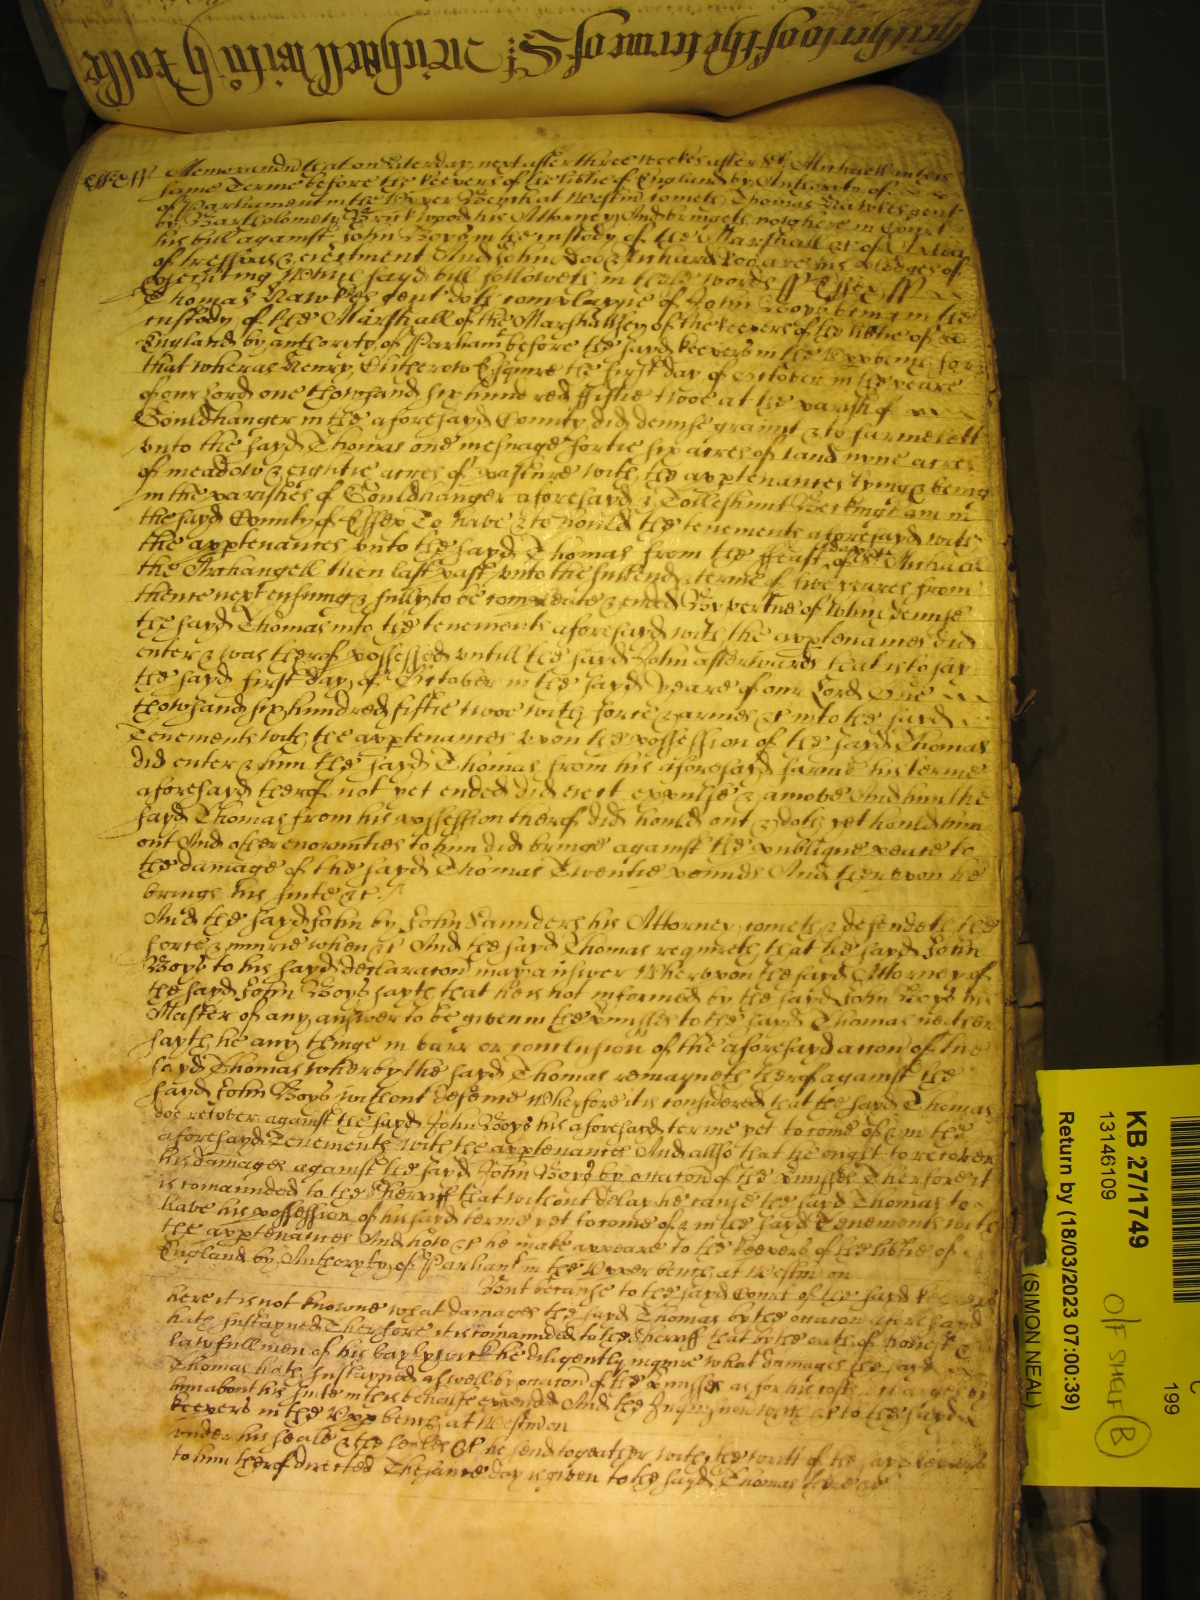 hitherto of the terme of St Michaell witnes H Rolle
Essex ss Memorandu that on Saterday next after three weekes after St Michaell in this
same Terme before the keepers of the libtie of England by Authority of
of Parliament in the Upper Bench at Westm cometh Thomas Hawkes gent
by Bartholomew Brickwood his Attorney And bringeth now here in Court
his bill against John Boys in the custody of the Marshall &c of a plea
of trespas & eiectment And John Doo & Richard Roo are his pledges of
prosecuting Which sayd bill followeth in these words ss Essex ss
Thomas Hawkes gent doth complayne of John Boys being in the
custody of the Marshall of the Marshallsey of the keepers of the libtie of
England by authority of Parliam before the sayd keepers in the Upp bench for
that wheras Henry Clitherow Esquire the first day of October in the yeare
of our Lord one thowsand six hundred fiftie twoe at the parish of
Gouldhanger in the aforesayd County did demise graunt & to farme lett
unto the sayd Thomas one mesuage fortie six acres of land nyne acres
of meadow & eightie acres of pasture with the apptenances lying & being
in the parishes of Gouldhanger aforesayd & Tolleshunt in
the sayd County of Essex To have & to hould the tenements aforesayd with
the apptenances unto the sayd Thomas from the ffeast of St Michaell
the Archangell then last past unto the full end & terme of five yeares from
thence next ensuing & fully to be compleate & ended By vertue of which demise
the sayd Thomas into the tenements aforesayd with the apptenances did
enter & was therof possessed untill the sayd John afterwards that is to say
the sayd first day of October in the sayd yeare of our Lord One
thowsand six hundred fiftie twoe with force & armes &c into the sayd
Tenements with the apptenances upon the possession of the sayd Thomas
did enter & him the sayd Thomas from his aforesayd farme his terme
aforesayd therof not yet ended did eiect expulse & amove And him the
sayd Thomas from his possession therof did hould out & doth yet hould him
out And other enormities to him did bringe against the publique peace to
the damage of the sayd Thomas Twentie pounds And therupon he
brings his suite &c
And the sayd John by John Saunders his Attorney cometh & defendeth the
force & iniurie when &c And the sayd Thomas requireth that the sayd John
Boys to his sayd declaracon may answer Wherupon the sayd Attorney of
the sayd John Boys sayth that he is not informed by the sayd John Boys his
Master of any answer to be given in the pmisses to the sayd Thomas neither
sayth he any thinge in barr or conclusion of the aforesayd accon of the
sayd Thomas wherby the sayd Thomas remayneth therof against the
sayd John Boys without defence Wherfore it is considered that the sayd Thomas
doe recover against the sayd John Boys his aforesayd terme yet to come of & in the
aforesayd Tenements with the apptenances And allso that he ought to recover
his damages against the sayd John Boys by occacon of the pmisses Therfore it
is comaunded to the Sherriff that without delay he cause the sayd Thomas to
have his possession of his sayd terme yet to come of & in the sayd Tenements with
the apptenances And how &c he make appeare to the keepers of the libtie of
England by Authoryty of Parliamt in the Upper bench at Westm on
But because to the sayd Court of the sayd keepers
here it is not knowne what damages the sayd Thomas by the occacon aforesayd
hath susteyned Therfore it is comaunded to the Sherriff that by the oath of honest &
lawfull men of his baylywick he diligently inquire what damages the sayd
Thomas hath susteyned aswell by occacon of the pmisses as for his costs & charges by
him about his suite in this behalfe expended And the Inquny now with &c to the sayd
keepers in the Upp bench at Westm on
under his seale & the seales &c he send togeather with the writt of the sayd keepers
to him therof directed The same day is given to the sayd Thomas there &c
KB 27/1749
13146109
Return by (18/03/2023 07:00:39)
(SIMON NEAL)
199
O/F SHELF B